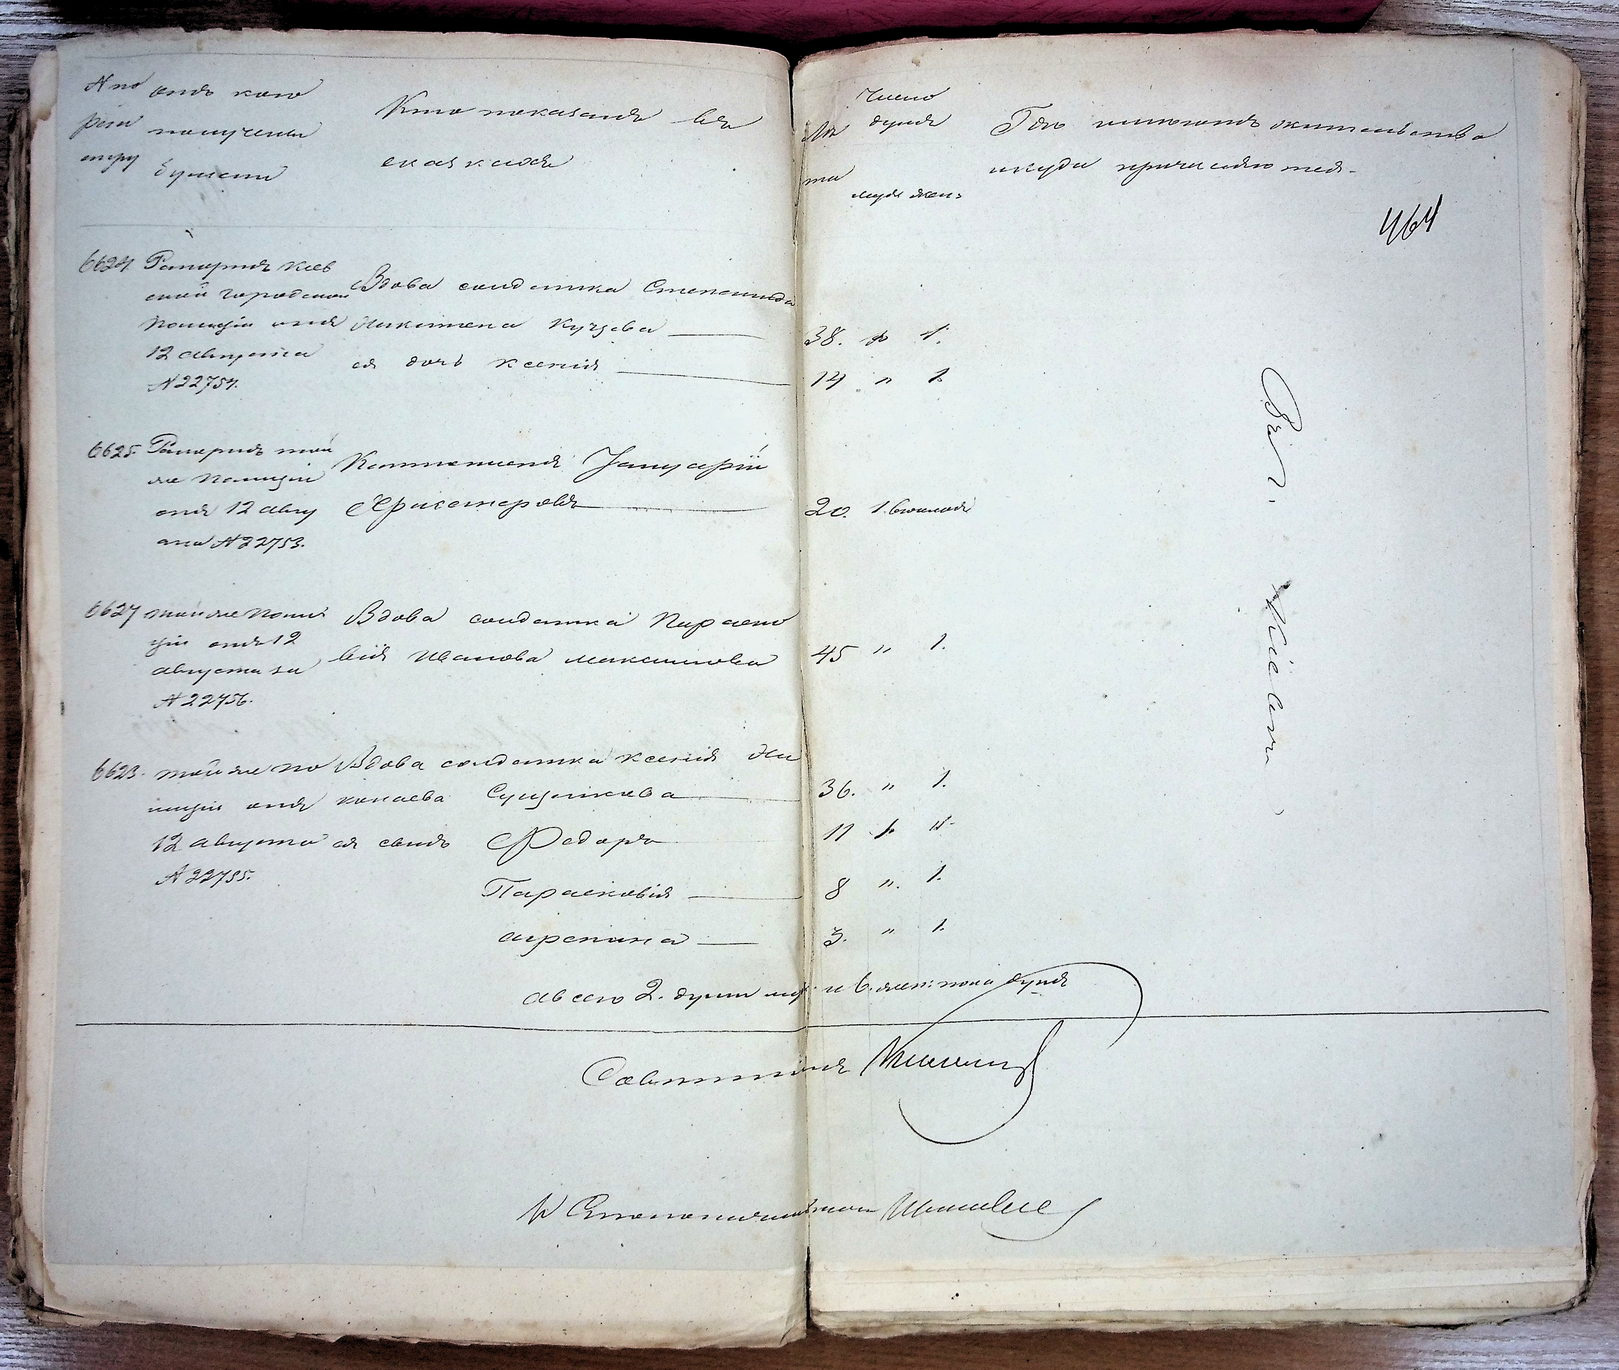 N по отъ кого
реги получены
стру бумаги
Кто показанъ въ
сказкахъ
Лѣ
та
число
душъ
муж. жен:
Гдѣ имѣютъ жительство
и куда причисляются.
464
6624. Рапортъ Кіев
ской городской
Полиціи отъ
12 августа
N 22754.
Вдова солдатка Степанида
Никитена Кучаева 38. " 1.
ея дочь Ксенія 14 " 1.
6625. Рапортъ той
же Полиціи
отъ 12 авгу
ста N 22753.
Коллегіенъ Јануарій
Христофоровъ 20. 1.
6627 той же Поли
ціи отъ 12
августа за
N 22756.
Вдова солдатка Параско
вія Иванова Максимова 45 " 1.
6623. той же По
лиціи отъ
12 августа
N 22755.
Вдова солдатка Ксенія Ни
колаева Сущикова 36. " 1.
ея сынъ Федоръ 11 1 "
Парасковія 8 ". 1.
Агрепина 3. " 1.
а всего 2. души муж. и 6. жен: пола душъ
Въ г. Кіевѣ
Совѣтникъ